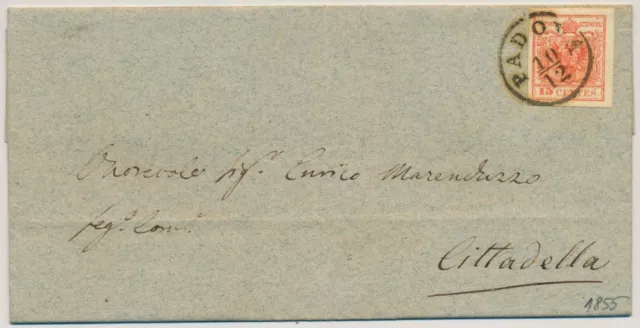 PADOVA
10/12
15 CENTES.
Onorevole Sigr. Enrico Marenduzzo
Cittadella
1855